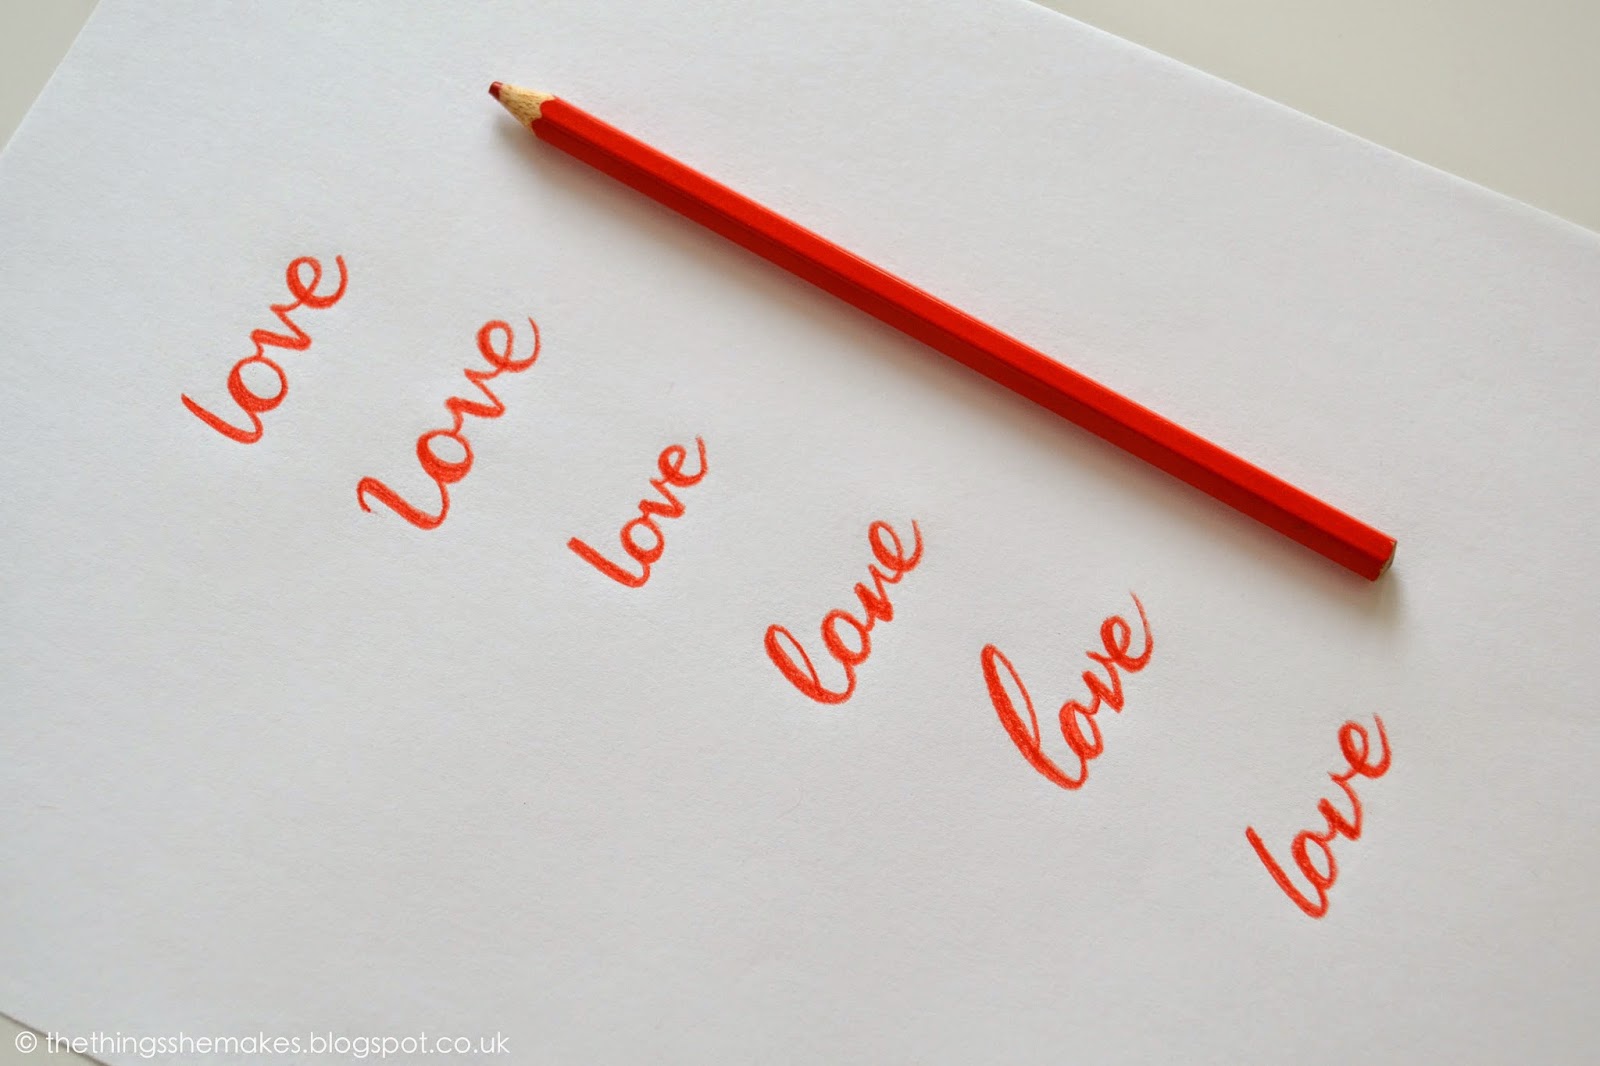 love
love
love
love
love
love
© thethingsshemakes.blogspot.co.uk